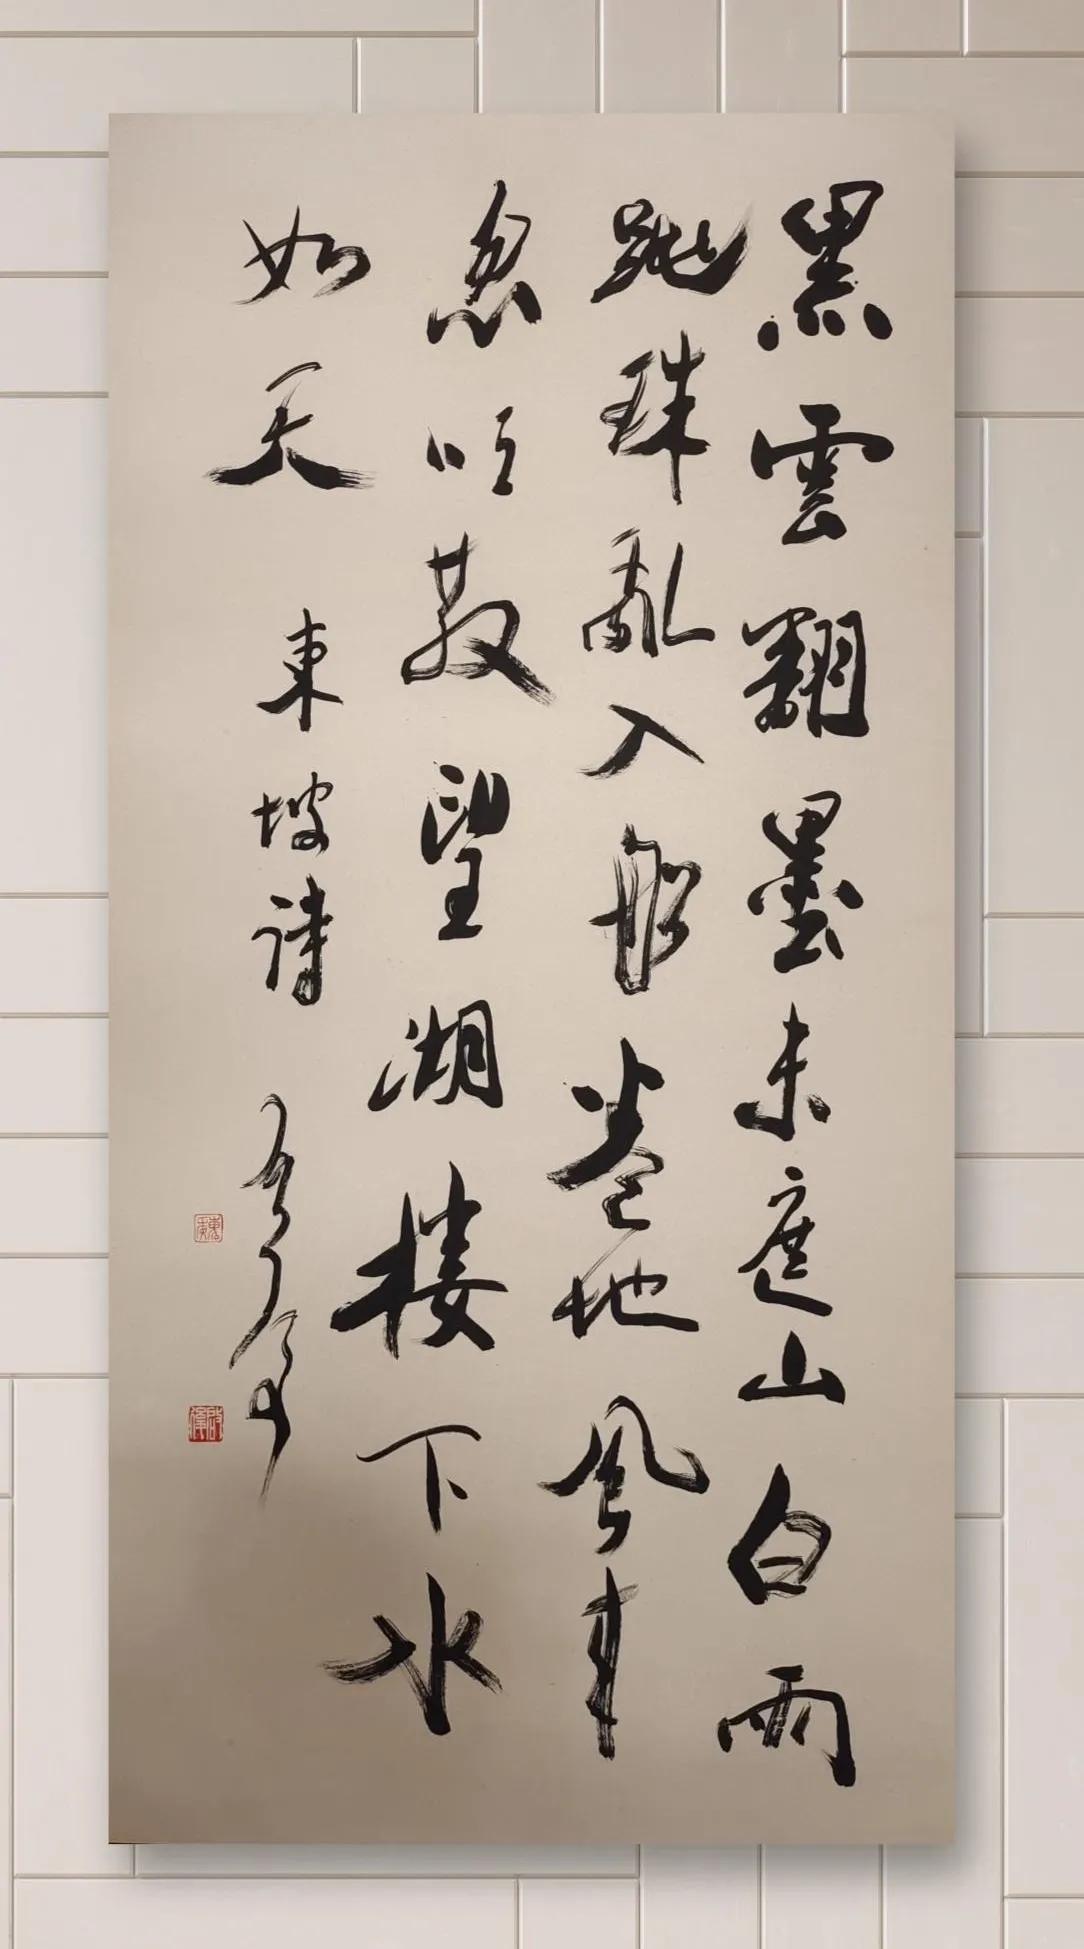 黑雲翻墨未遮山白雨
跳珠亂入船卷地風来
忽吹散望湖樓下水
如天
東坡詩